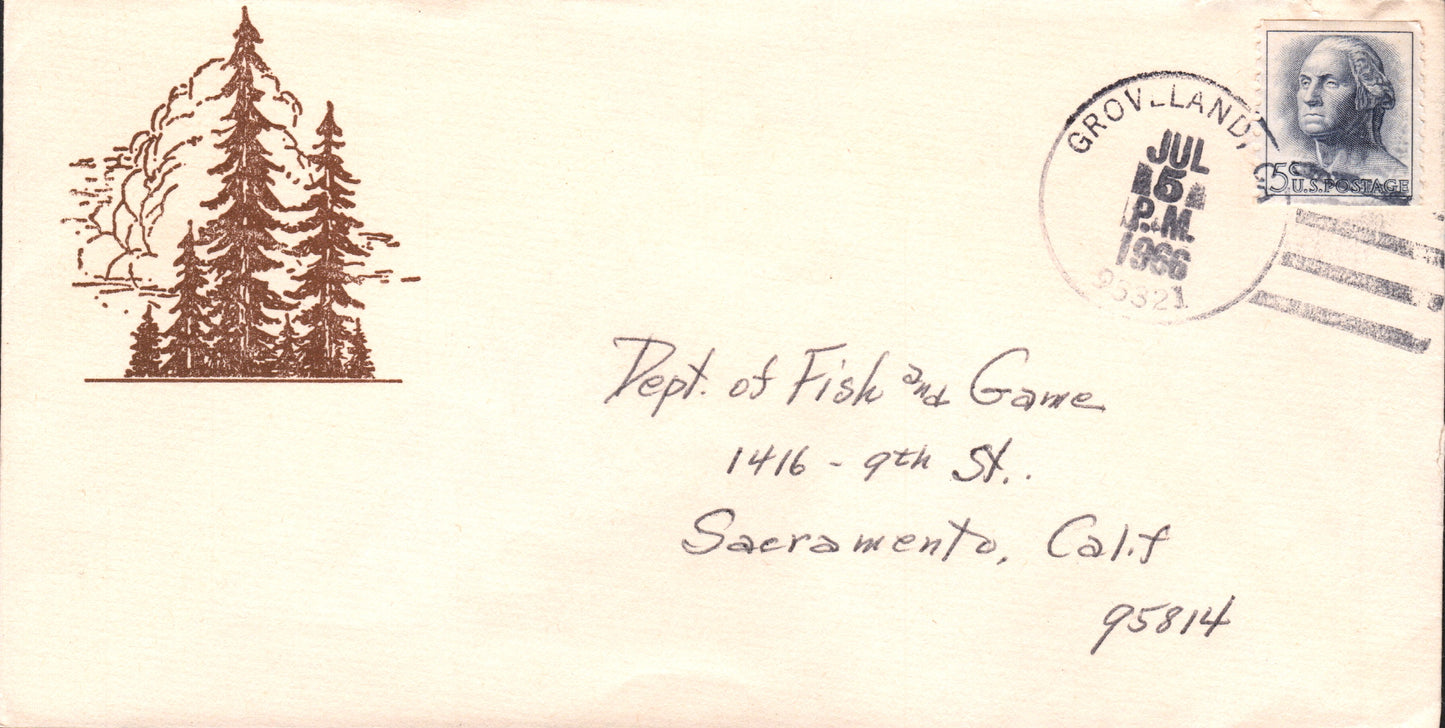 GROVELAND,
JUL
5
P.M.
1966
95321
5¢
U.S. POSTAGE
Dept. of Fish and Game
1416 - 9th St..
Sacramento, Calif
95814